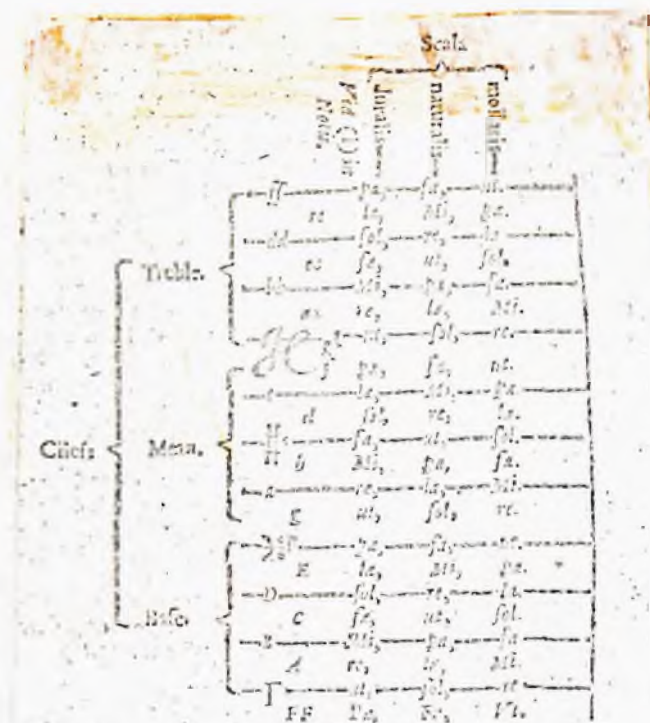 Scala
Vid (i) in Notis. duralis naturalis mollaris
ff pa, fa, ut.
ee la, Mi, pa.
dd ſol, re, la
cc fa, ut, ſol.
Treble.
bb Mi, pa, fa.
aa re, la, Mi.
g ut, ſol, re.
f pa, fa, ut.
e la, Mi, pa.
d ſol, re, la.
Cliefs Mean. c fa, ut, ſol.
b Mi, pa, fa.
a re, la, Mi.
g ut, ſol, re.
F pa, fa, ut.
E la, Mi, pa.
D ſol, re, la.
Baſe. C fa, ut, ſol.
B Mi, pa, fa
A re, la, Mi.
Γ ut, ſol, re
FF Pa, Fa, Vt.